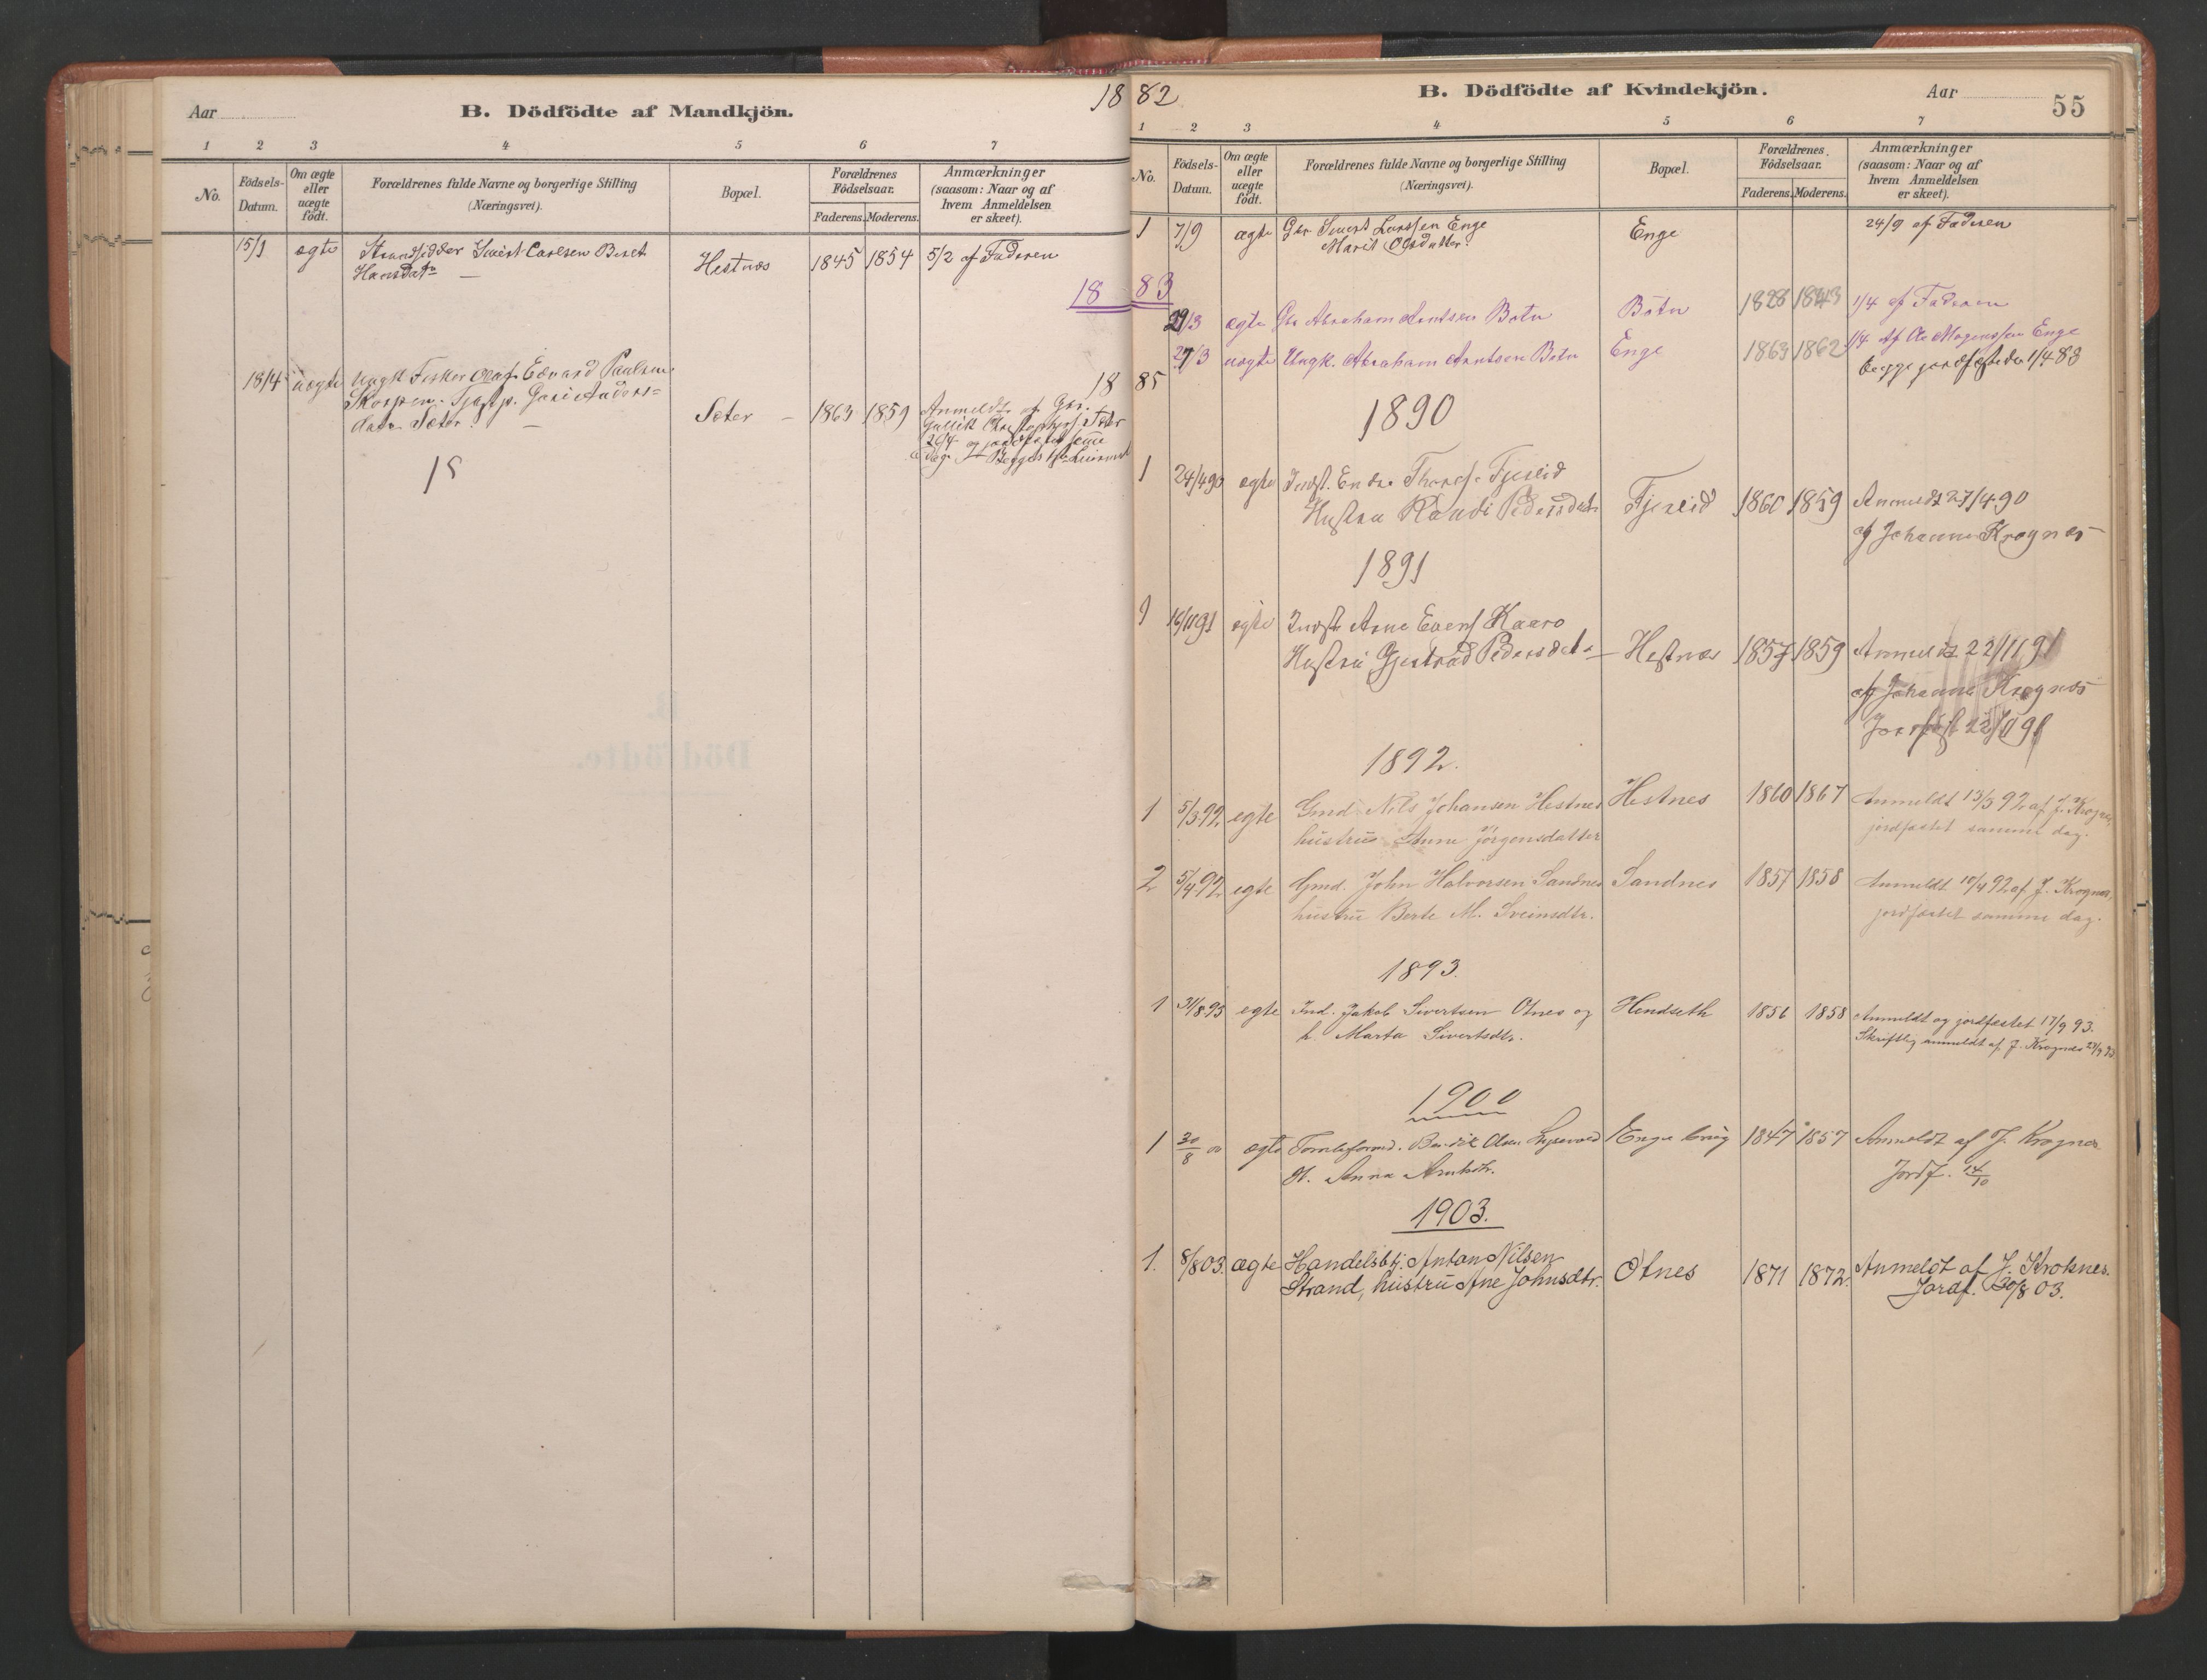 Aar
B. Dödfödte af Mandkjön.
18
1 2 3 4 5 6 7
No.
Födsels-
Datum.
Om ægte
eller
uægte
födt.
Forældrenes fulde Navne og borgerlige Stilling
(Næringsvei).
Bopæl.
Forældrenes
Födselsaar.
Faderens. Moderens.
Anmærkninger
(saasom: Naar og af
hvem Anmeldelsen
er skeet).
15/1 ægte Strandsidder Sivert Carlsen Beret
Hansdatr
Hestnæs 1845 1854 5/2 af Faderen
18
18/4 uægte Ungk Fisker Olaf Edvard Paulsen
Skorpen. Tjastp. Guri Anders=
datr Sæter.
Sæter 1863 1859 Anmeldt af Gbr.
18
18
82
B. Dödfödte af Kvindekjön.
Aar
55
1 2 3 4 5 6 7
No.
Födsels-
Datum.
Om ægte
eller
uægte
födt.
Forældrenes fulde Navne og borgerlige Stilling
(Næringsvei).
Bopæl.
Forældrenes
Födselsaar.
Faderens. Moderens.
Anmærkninger
(saasom: Naar og af
hvem Anmeldelsen
er skeet).
1 7/9 ægte Gbr Sivert Larssen Enge
Marit Olsdatter.
Enge 24/9 af Faderen
83
29/3 ægte Gbr Abraham Arntsen Botn Botn 1828 1843 1/4 af Faderen
27/3 uægte Ungk. Abraham Arntsen Botn Enge 1863 1862 1/4 af Mogenssen Enge
begge jordfæstede 1/4 83
85
1890
1 24/4 90 egte Endre Fjeseid
Hustru Randi Pedersdatr
Fjeseid 1860 1859 Anmeldt 27/4 90
af Johannes Krognes
1891
1 16/11 91 egte Arne Evens Kaaro
Hustru Gjertrud Pedersdatr
Hestnæs 1857 1859 Anmeldt 22/11 91
af Johannes Krognes
Jordfæst 22/11 91
1892.
1 5/3 92. egte Gmd Nils Johansen Hestnes
hustru Anne Jörgensdatter
Hestnes 1860 1867 Anmeldt 13/3 92 af J. Krognes,
jordfæstet samme dag.
2 5/4 92 egte Gmd. John Halvorsen Sandnes
hustru Berte M. Sveinsdtr.
Sandnes 1857 1858 Anmeldt 10/4 92 af J. Krognes,
jordfæstet samme dag.
1893.
1 31/8 93 egte Ind. Jakob Sivertsen Otnes og
h. Marta Sivertsdtr.
Hendseth 1856 1858 Anmeldt og jordfæstet 17/9 93.
Skriftlig anmeldt af J. Krognes
1900
1 30/8 00 ægte Tomteformd. Bendik Olsen
H. Anna Arntsdtr.
Enge brug 1847 1857 Anmeldt af J. Krognes
Jordf. 14/10
1903.
1. 8/8 03. ægte Handelsbtj. Anton Nilsen
Strand, hustru Ane Johnsdtr.
Otnes 1871 1872 Anmeldt af J. Kroknes.
Jordf. 30/8 03.